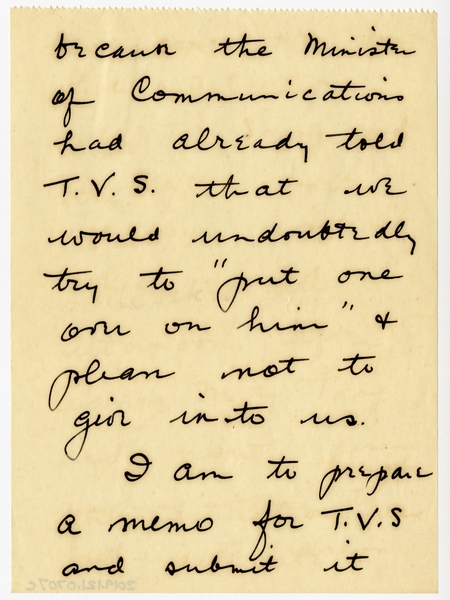 because the Minister
of Communications
had already told
T.V.S. that we
would undoubtedly
try to "put one
over on him" &
please not to
give in to us.
I am to prepare
a memo for T.V.S
and submit it
2019.121.0707c